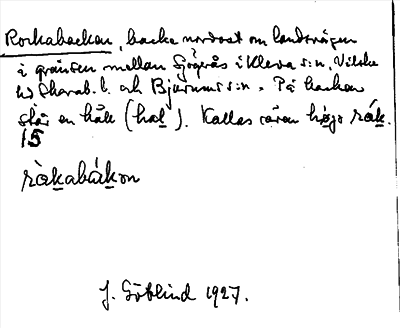 Rockabacken, backe nordost om landsvägen
i gränsen mellan Sjögrås i Kleva s:n, Vilske
hd Skarab. l. och Bjurums s:n. På backen
står en håle (hal). Kallas även högo råk.
15
ràkabákon
J. Götlind 1927.